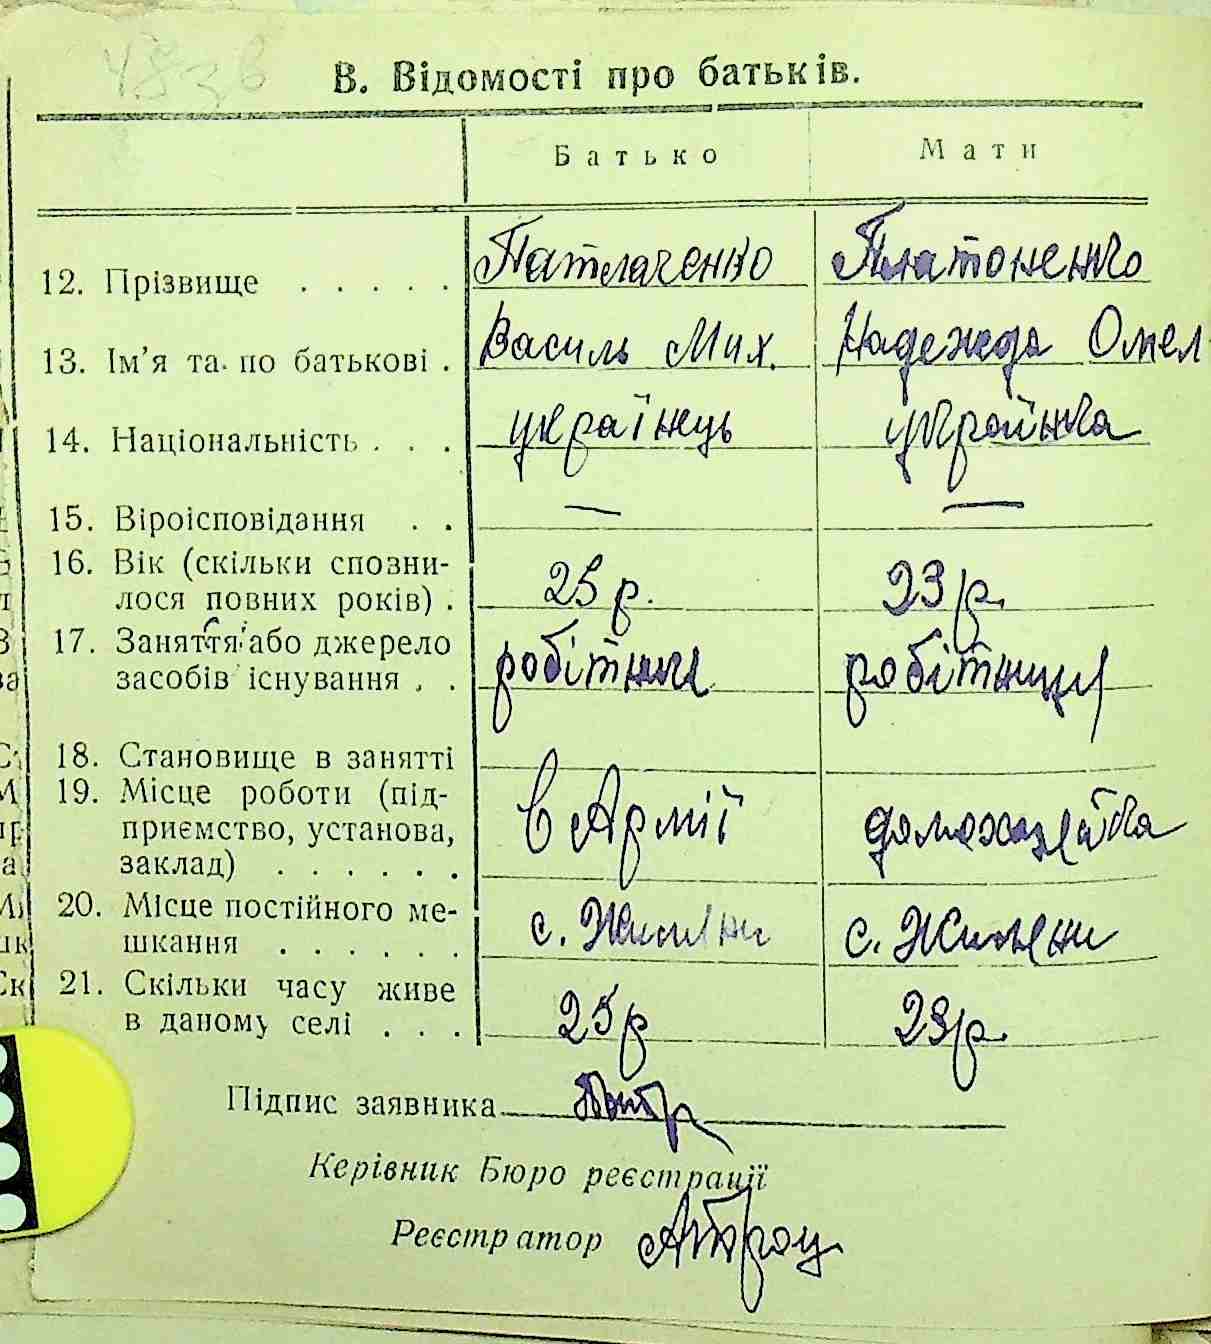 В. Відомості про батьків.
Батько Мати
12. Прізвище . . . . . Патлаченко Платоненко
13. Ім'я та по батькові . Василь Мих. Надежда Омел
14. Національність . . . українець українка
15. Віроісповідання . . — —
16. Вік (скільки спозни-
лося повних років) . 25 р. 23 р.
17. Заняття або джерело
засобів існування . . робітник робітниця
18. Становище в занятті
19. Місце роботи (під-
приємство, установа, в Армії домохазяйка
заклад) . . . . . .
20. Місце постійного ме-
шкання . . . . . . с. с.
21. Скільки часу живе
в даному селі . . . 25 р 23 р.
Підпис заявника
Керівник Бюро реєстрації
Реєстратор